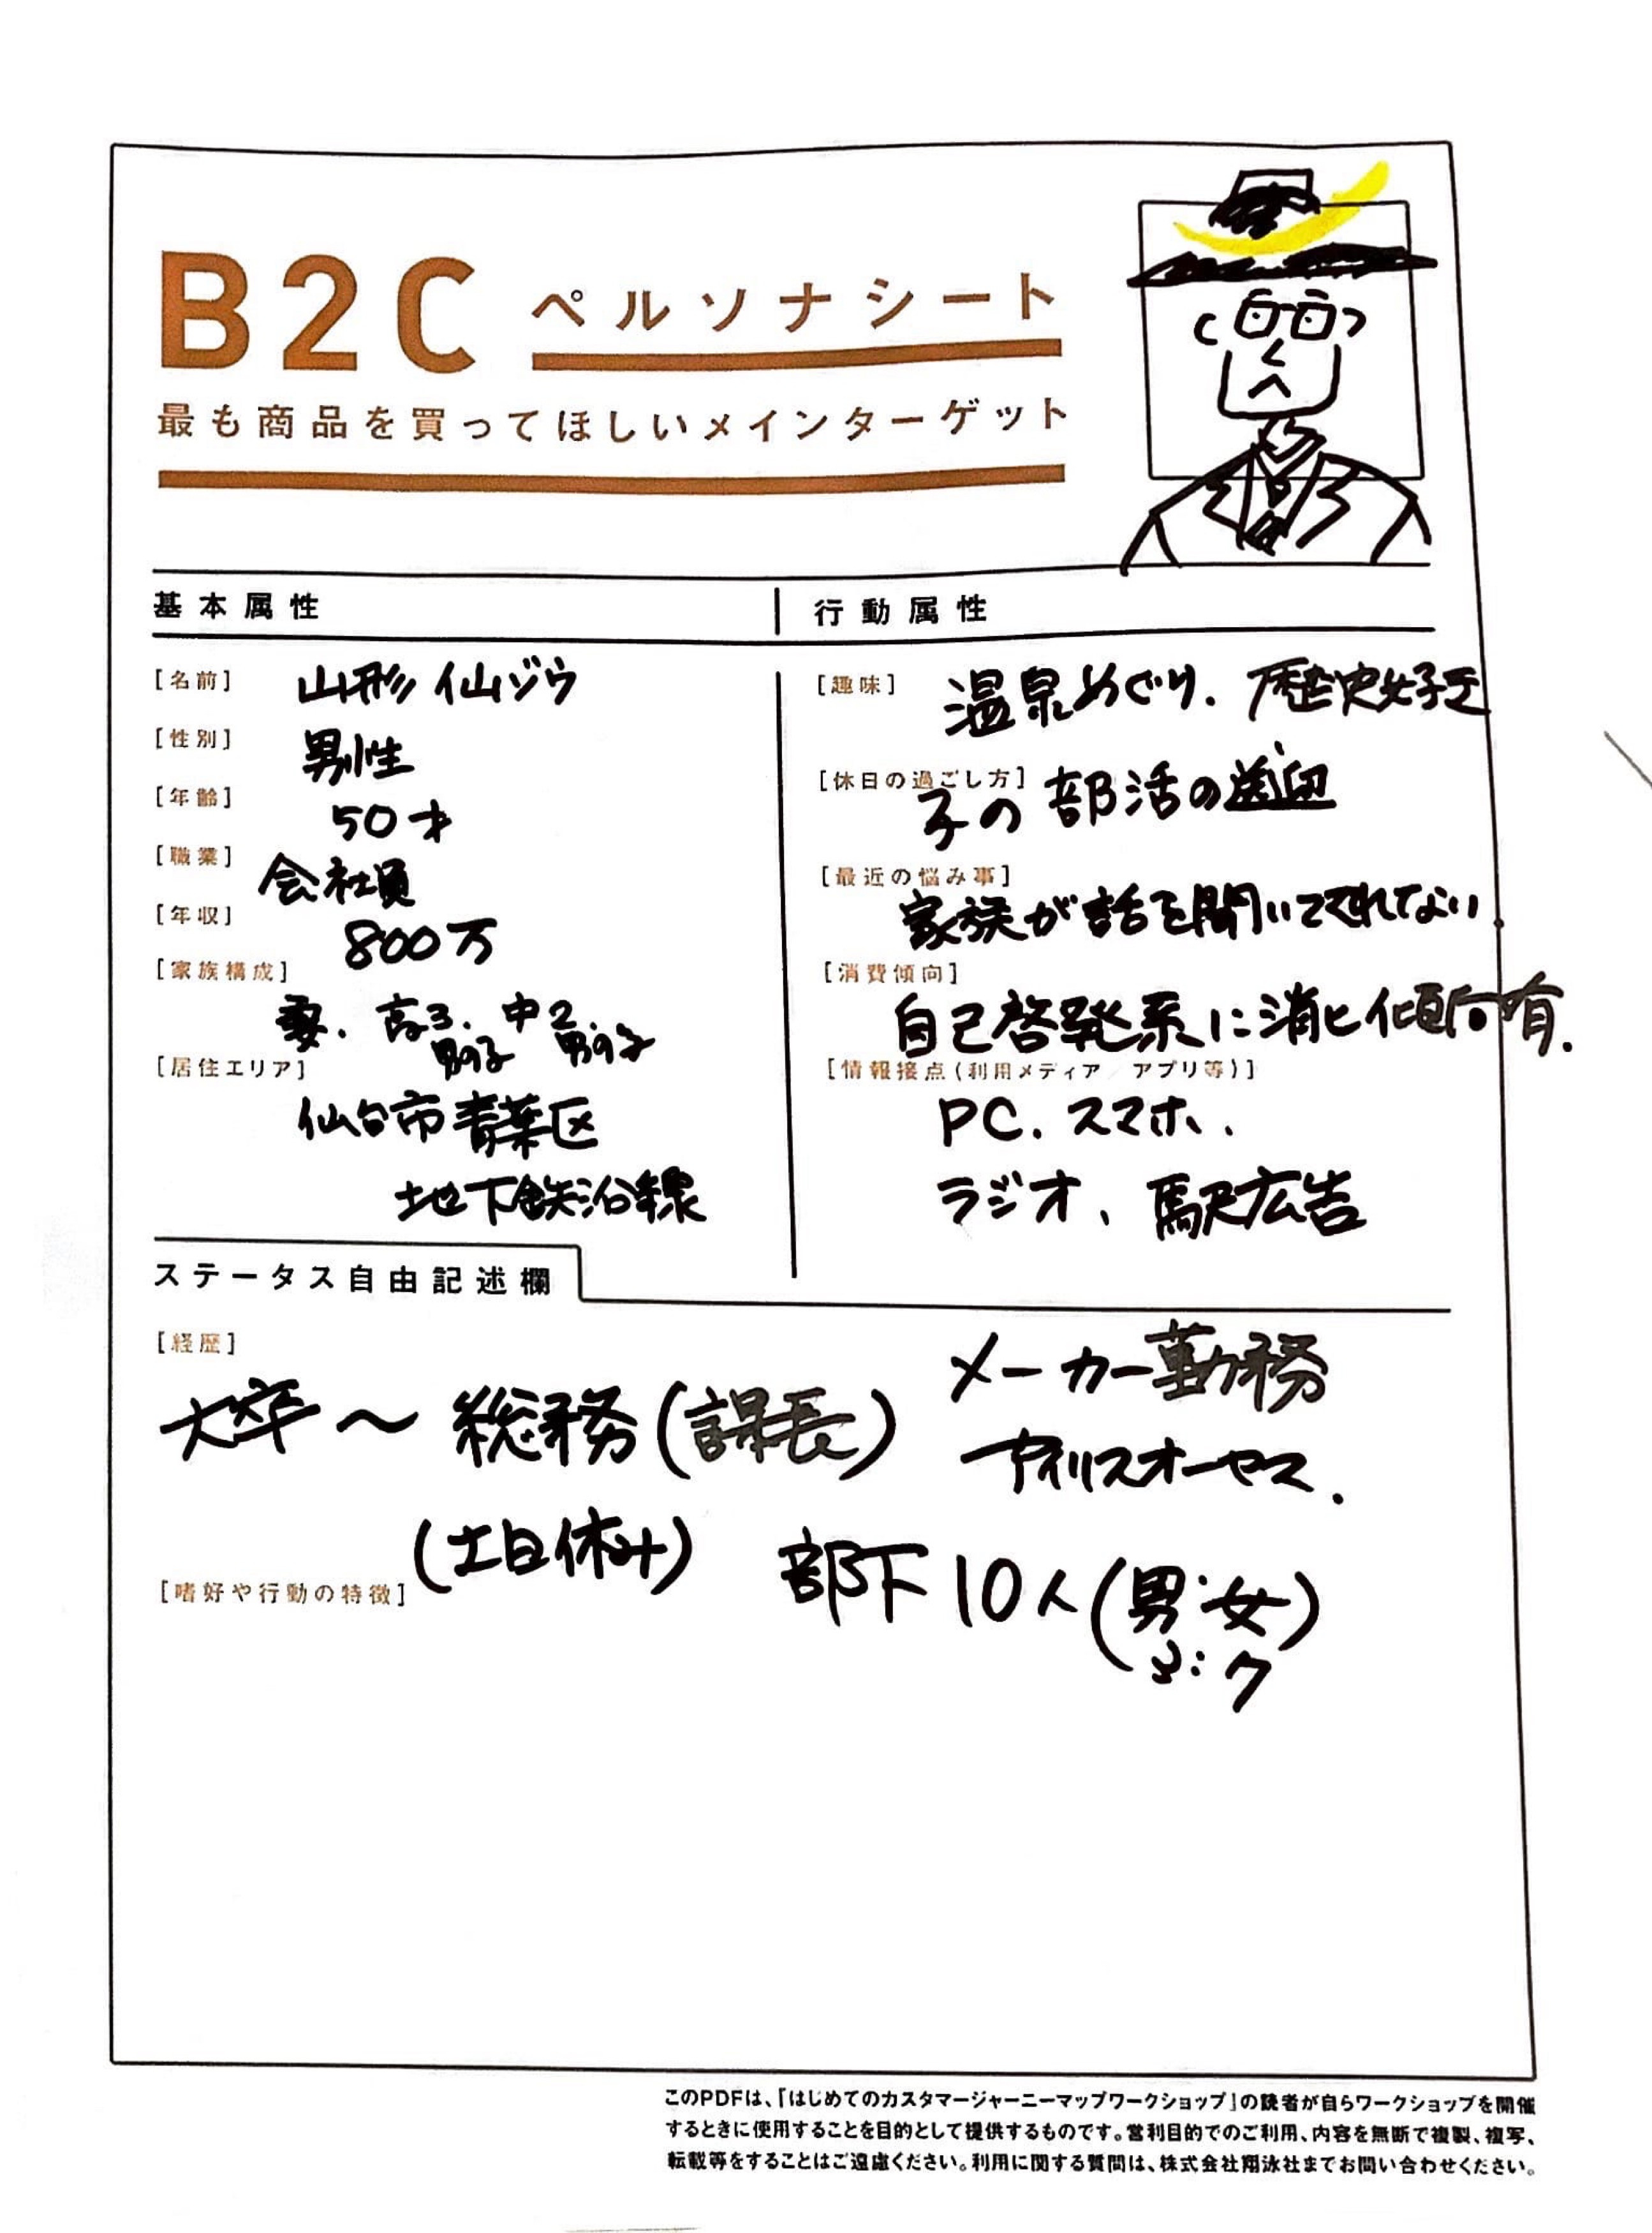 B2C ペルソナシート
最も商品を買ってほしいメインターゲット
基本属性
[名前] 山形 仙ゾウ
[性別] 男性
[年齢] 50才
[職業] 会社員
[年収] 800万
[家族構成]
妻、高3男の子、中2男の子
[居住エリア]
仙台市青葉区
地下鉄沿線
行動属性
[趣味] 温泉めぐり、歴史好き
[休日の過ごし方]
子の部活の送迎
[最近の悩み事]
家族が話を聞いてくれない
[消費傾向]
自己啓発系に消ヒ傾向有.
[情報接点(利用メディア/アプリ等)]
PC. スマホ、
ラジオ、駅広告
ステータス自由記述欄
[経歴]
大卒〜総務(課長)
メーカー勤務
アイリスオーヤマ.
(土日休み)
部下10人(男:女)
3:7
[嗜好や行動の特徴]
このPDFは、「はじめてのカスタマージャーニーマップワークショップ」の読者が自らワークショップを開催
するときに使用することを目的として提供するものです。営利目的でのご利用、内容を無断で複製、複写、
転載等をすることはご遠慮ください。利用に関する質問は、株式会社翔泳社までお問い合わせください。